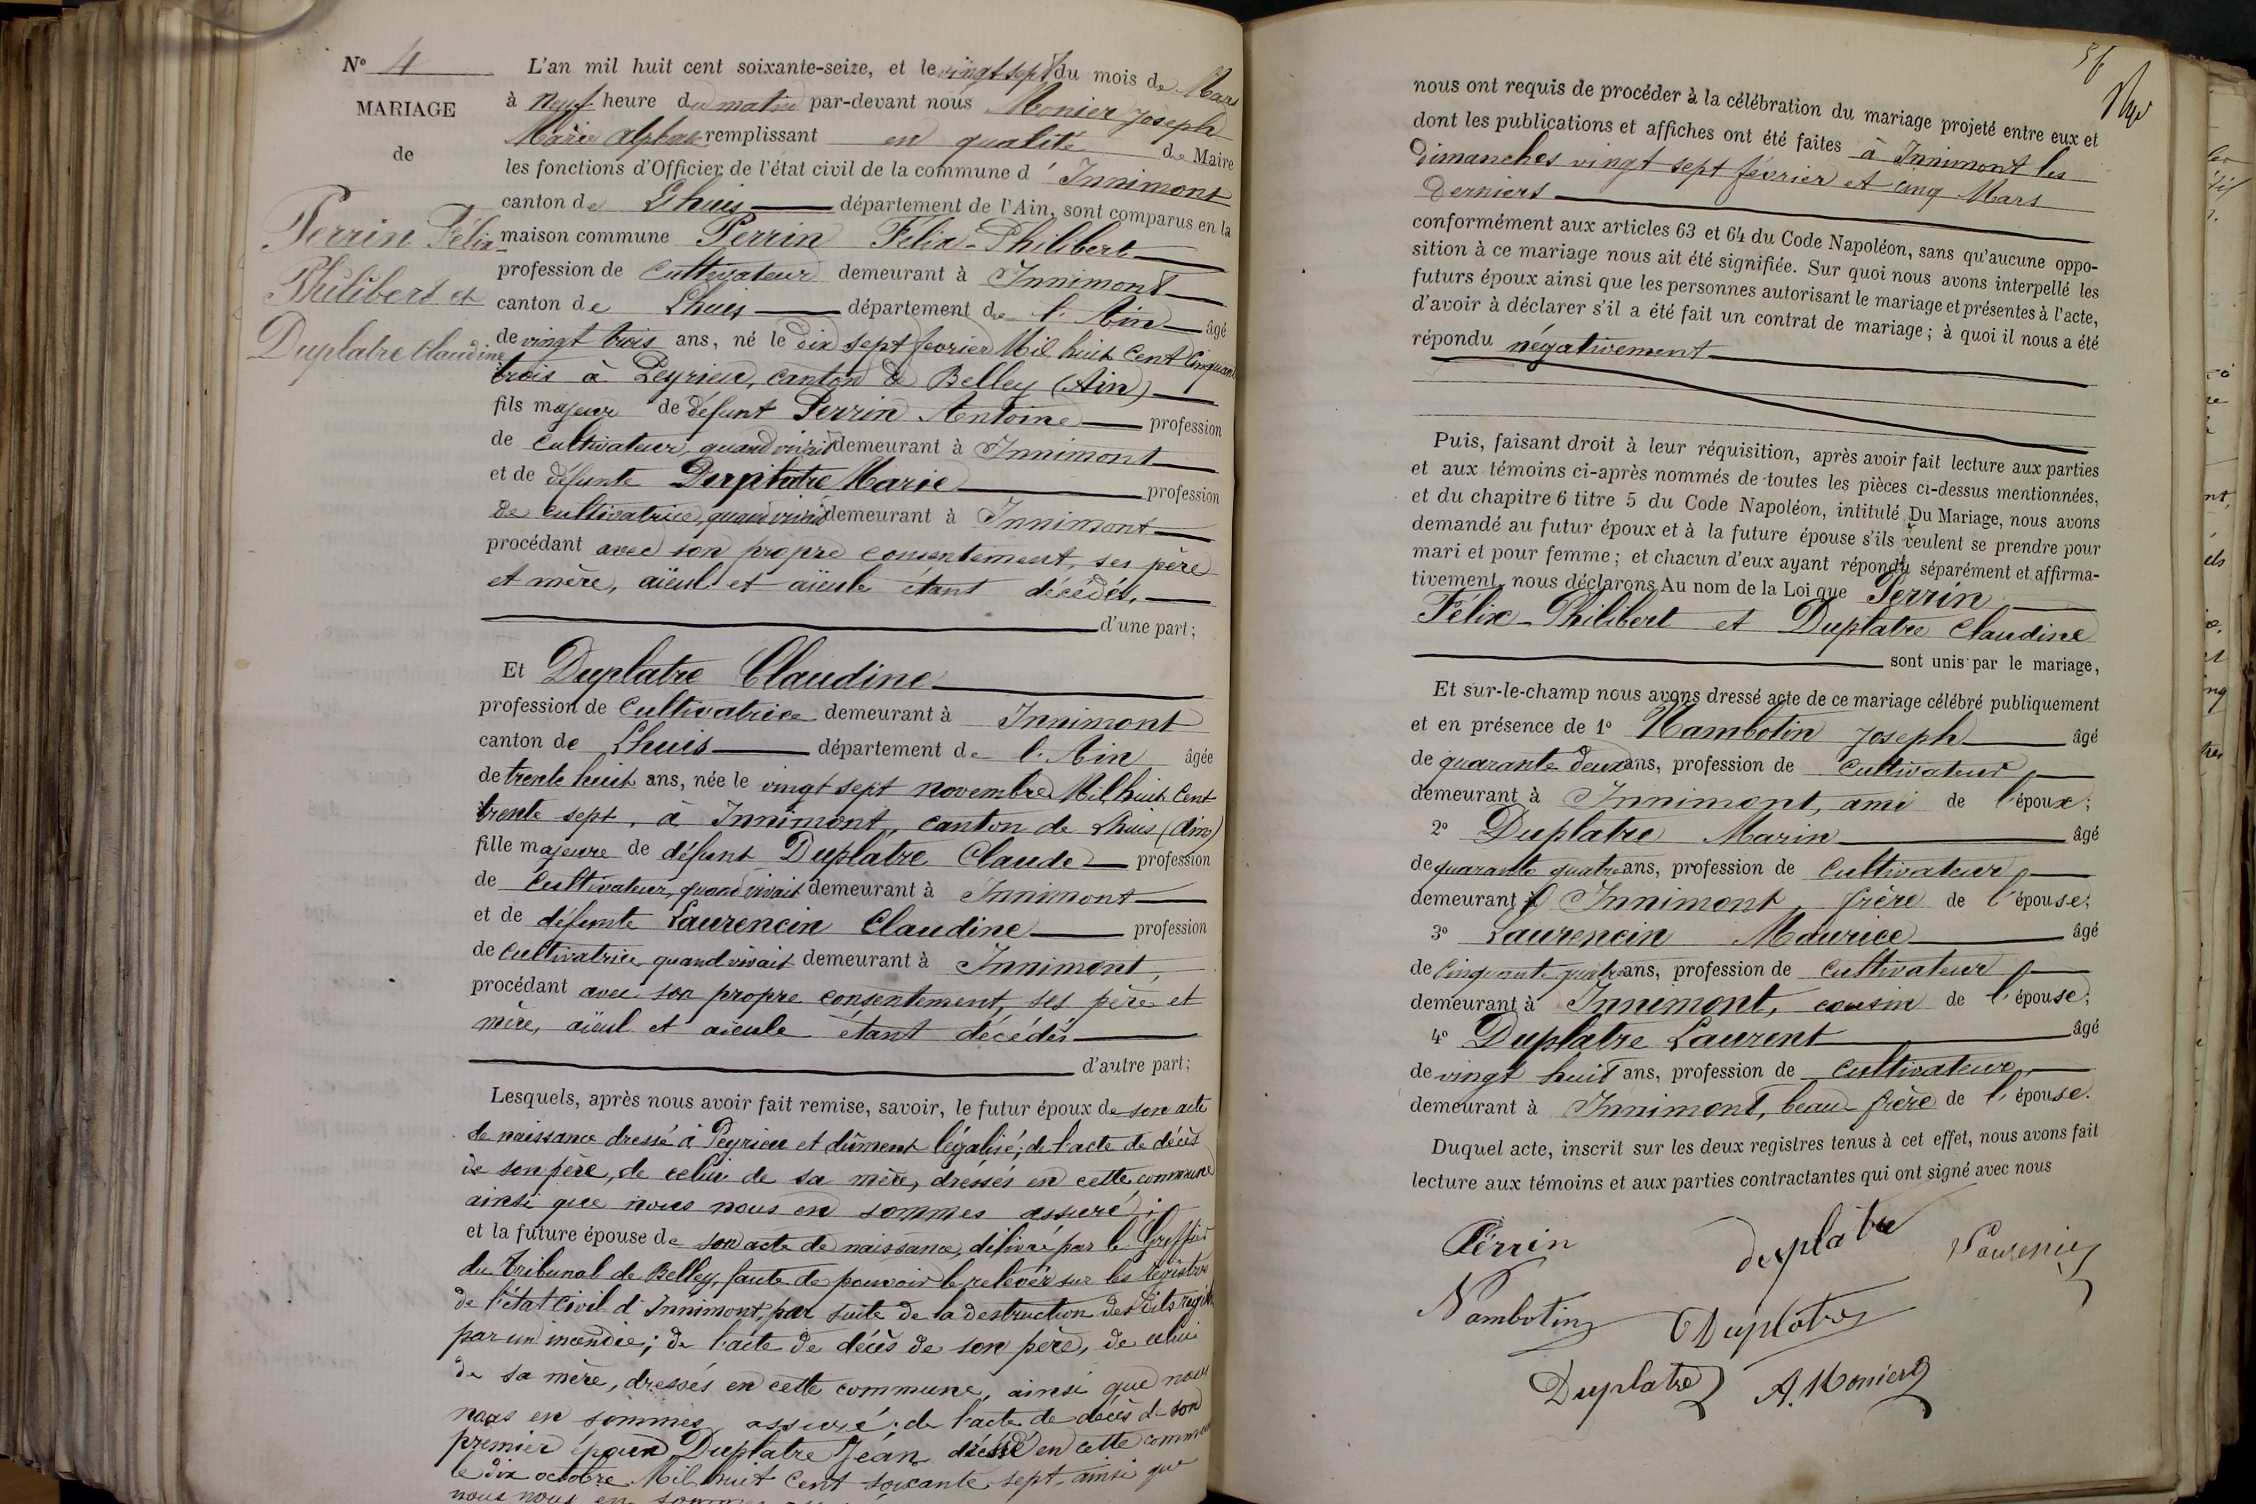 N° 4
MARIAGE
de
Perrin Félix
Philibert et
Duplatre Claudine
L'an mil huit cent soixante-seize, et le vingt sept du mois de Mars
à Neuf heure du matin par-devant nous Monier Joseph
Marie Alphonse remplissant en qualité de Maire
les fonctions d'Officier de l'état civil de la commune d'Innimont
canton de Lhuis département de l'Ain, sont comparus en la
maison commune Perrin Félix-Philibert
profession de Cultivateur demeurant à Innimont
canton de Lhuis département de l'Ain âgé
de vingt trois ans, né le dix sept février Mil huit Cent Cinquante
trois à Peyrieu, canton de Belley (Ain)
fils majeur de défunt Perrin Antoine profession
de Cultivateur, quand vivait demeurant à Innimont
et de défunte Duplatre Marie profession
de cultivatrice, quand vivait demeurant à Innimont
procédant avec son propre consentement, ses père
et mère, aïeul et aïeule étant décédés,
d'une part;
Et Duplatre Claudine
profession de Cultivatrice demeurant à Innimont
canton de Lhuis département de l'Ain âgée
de trente huit ans, née le vingt sept novembre Mil huit Cent
trente sept, à Innimont, canton de Lhuis (Ain)
fille majeure de défunt Duplatre Claude profession
de Cultivateur, quand vivait demeurant à Innimont
et de défunte Laurencin Claudine profession
de cultivatrice quand vivait demeurant à Innimont,
procédant avec son propre consentement, ses père et
mère, aïeul et aïeule étant décédés
d'autre part;
Lesquels, après nous avoir fait remise, savoir, le futur époux de son acte
de naissance dressé à Peyrieu et dûment légalisé; de l'acte de décès
de son père, de celui de sa mère, dressés en cette commune
ainsi que nous nous en sommes assuré;
et la future épouse de son acte de naissance, délivré par le Greffier
du Tribunal de Belley, faute de pouvoir le relever sur les registres
de l'état civil d'Innimont, par suite de la destruction des dits regist
par un incendie; de l'acte de décès de son père, de celui
de sa mère, dressés en cette commune, ainsi que nous
nous en sommes assuré; de l'acte de décès de son
premier époux Duplatre Jean dressé en cette commune
le dix octobre Mil huit Cent soixante sept, ainsi que
nous nous en
36
nous ont requis de procéder à la célébration du mariage projeté entre eux et
dont les publications et affiches ont été faites à Innimont les
Dimanches vingt sept février et cinq Mars
Derniers
conformément aux articles 63 et 64 du Code Napoléon, sans qu'aucune oppo-
sition à ce mariage nous ait été signifiée. Sur quoi nous avons interpellé les
futurs époux ainsi que les personnes autorisant le mariage et présentes à l'acte,
d'avoir à déclarer s'il a été fait un contrat de mariage; à quoi il nous a été
répondu négativement
Puis, faisant droit à leur réquisition, après avoir fait lecture aux parties
et aux témoins ci-après nommés de toutes les pièces ci-dessus mentionnées,
et du chapitre 6 titre 5 du Code Napoléon, intitulé Du Mariage, nous avons
demandé au futur époux et à la future épouse s'ils veulent se prendre pour
mari et pour femme; et chacun d'eux ayant répondu séparément et affirma-
tivement, nous déclarons Au nom de la Loi que Perrin
Félix-Philibert et Duplatre Claudine
sont unis par le mariage,
Et sur-le-champ nous avons dressé acte de ce mariage célébré publiquement
et en présence de 1° Nambotin Joseph âgé
de quarante deux ans, profession de cultivateur,
demeurant à Innimont, ami de l'époux;
2° Duplatre Marin âgé
de quarante quatre ans, profession de Cultivateur,
demeurant à Innimont, frère de l'épouse;
3° Laurencin Maurice âgé
de Cinquante quatre ans, profession de cultivateur,
demeurant à Innimont, cousin de l'épouse;
4° Duplatre Laurent âgé
de vingt huit ans, profession de Cultivateur,
demeurant à Innimont, beau-frère de l'épouse.
Duquel acte, inscrit sur les deux registres tenus à cet effet, nous avons fait
lecture aux témoins et aux parties contractantes qui ont signé avec nous
Perrin duplatre
Nambotin Duplatre
Duplatre A. Monier